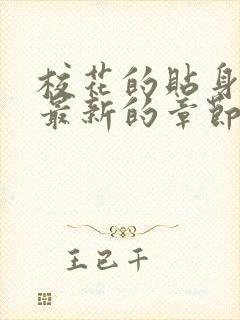 校花的貼身
最新的章節
王已千